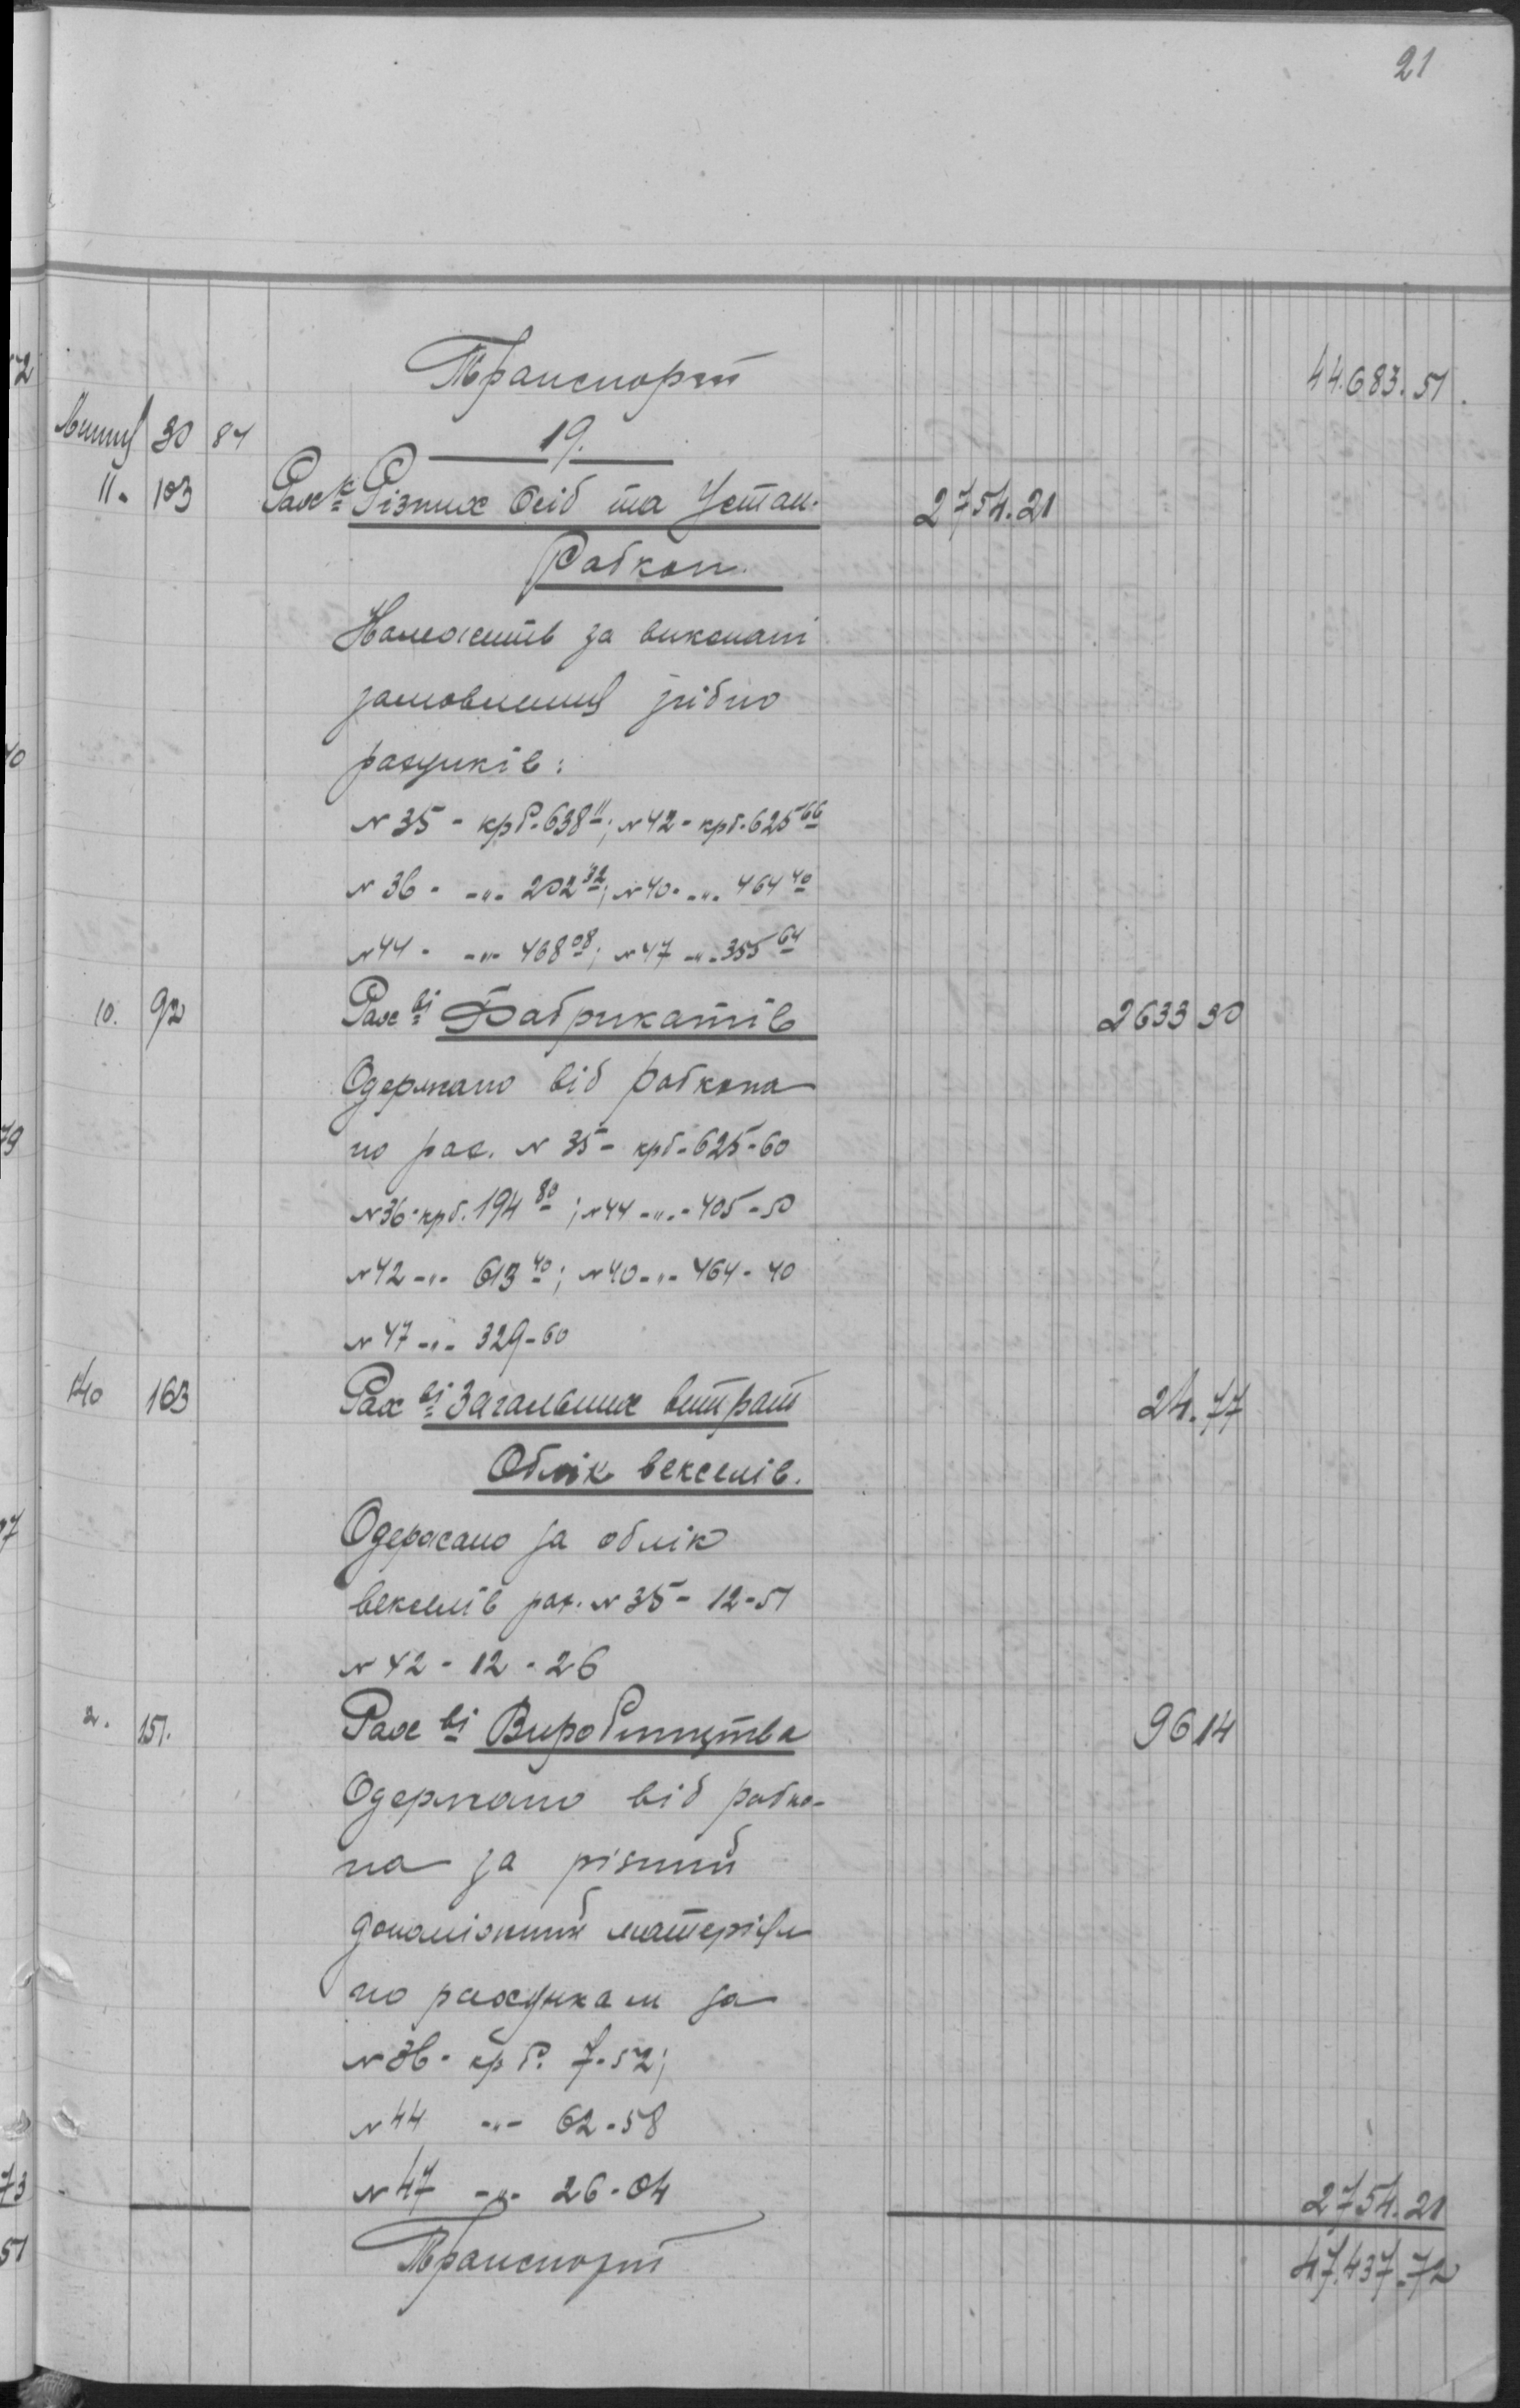 21
Транспорт 44.683.51.
Липня 30 84 19.
11. 103 Рах-к Різних Осіб та Устан. 2754.21
Робкоп.
Належить за виконані
замовлення згідно
рахунків:
N 35 - крб. 638 11; N 42 - крб. 625 66
N 36 - -"- 202 32; N 40 - -"- 464 40
N 44 - -"- 468 08; N 47 -"- 355 64
10. 92 Рах ві Фабрикатів 2633 30
Одержано від робкопа
по рах. N 35 - крб - 625-60
N 36 - крб. 194 80; N 44 -"- 405-50
N 42 -"- 613 40; N 40 -"- 464-40
N 47 -"- 329-60
140 163 Рах ві Загальних витрат 24.77
Облік векселів.
Одержано за облік
векселів рах. N 35 - 12-51
N 42 - 12-26
2. 151. Рах ві Виробництва 96 14
Одержано від робко-
па за різний
допоміжний матеріял
по рахункам за
N 36 - крб. 7-52;
N 44 -"- 62-58
N 47 -"- 26-04 2754.21
Транспорт 47.437.72